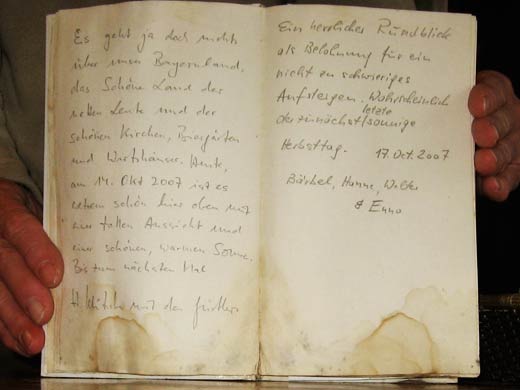 Es geht ja doch nichts
über unser Bayernland,
das Schöne Land der
netten Leute und der
schönen Kirchen, Biergärten
und Wirtshäuser. Heute,
am 14. Okt 2007 ist es
extrem schön hier oben mit
einer tollen Aussicht und
einer schönen, warmen Sonne.
Bis zum nächsten Mal
H. mit den
Ein herrlicher Rundblick
als Belohnung für ein
nicht zu schwieriges
Aufsteigen. Wahrscheinlich
letzte
der zunächst sonnige
Herbsttag. 17. Oct. 2007
Bärbel, Hanne, Walter
& Enno